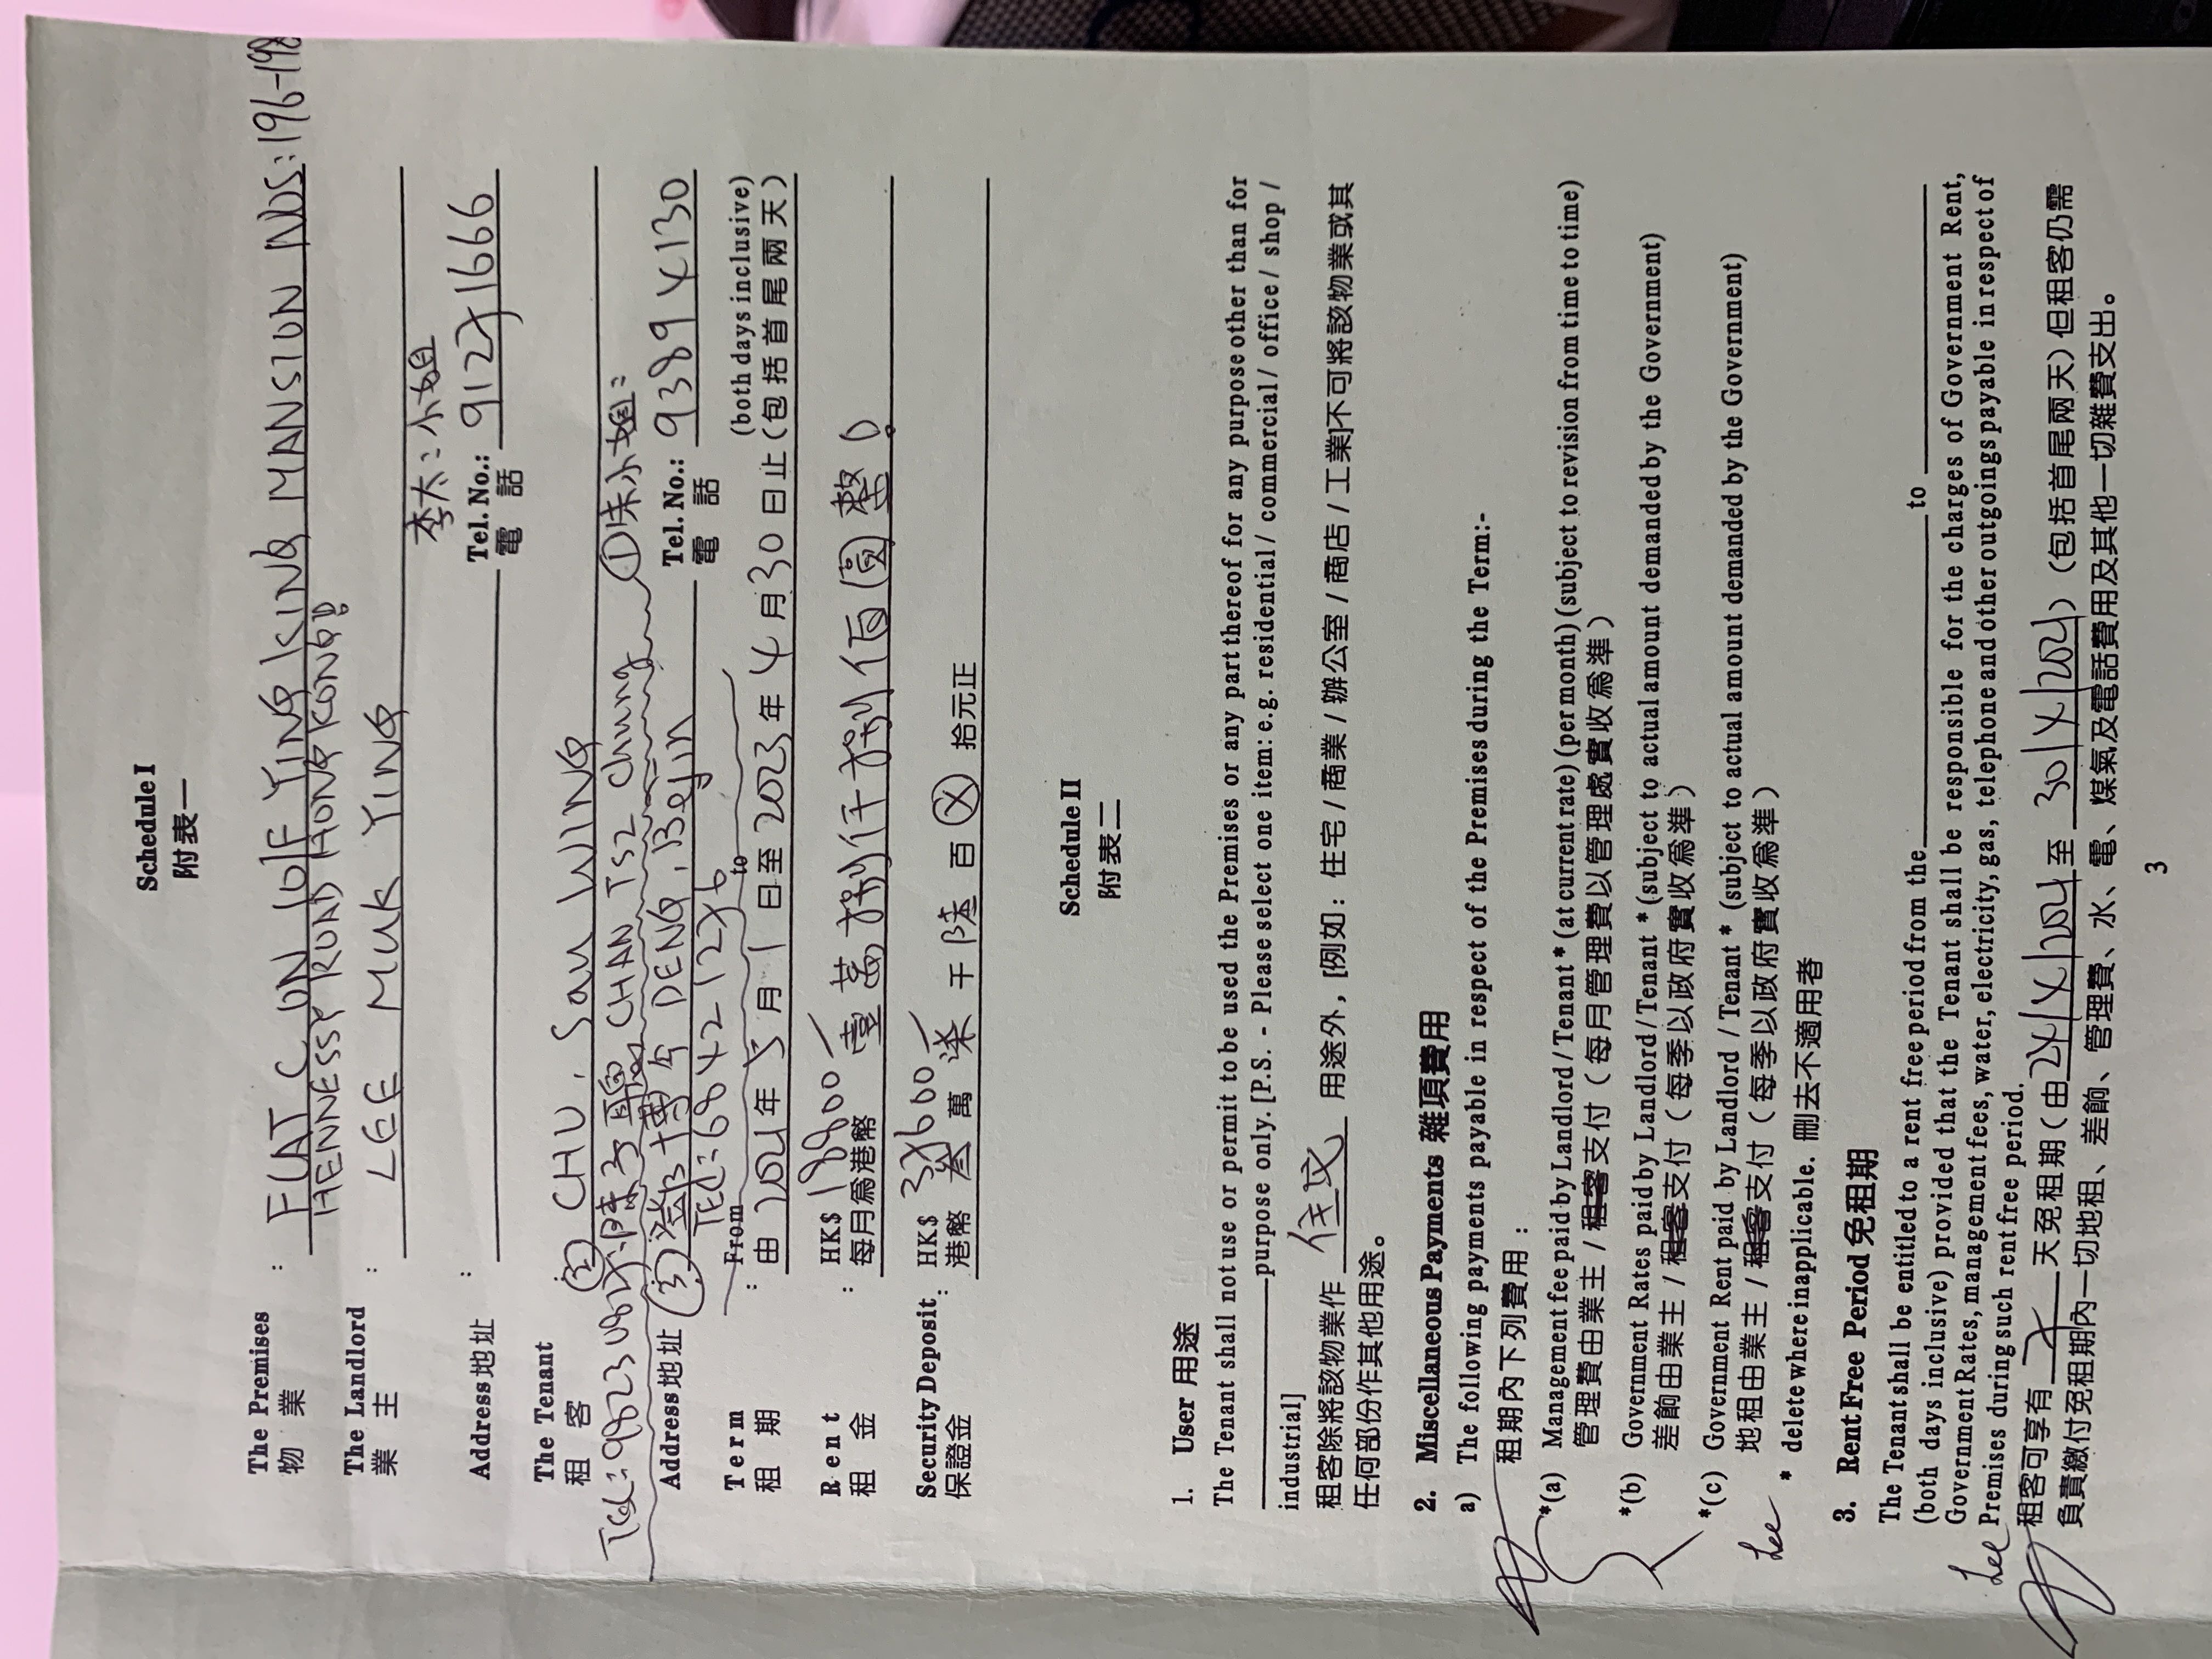 Schedule I
附表一
The Premises : FLAT C ON 10/F YING KING MANSION NOS: 196-198
物業 HENNESSY ROAD HONG KONG
The Landlord : LEE MUK YING
業主
李太: 小姐
Address地址 : Tel. No.: 9127 1666
電話
The Tenant CHU, Sau WING ① 朱小姐:
租客 ②
CHAN TSZ Chung
Address地址 ③ 鄧博今 DENG, Bejin Tel. No.: 9389 4130
電話
TEL: 6842 1276
Term : From to (both days inclusive)
租期 由 2021 年 5 月 1 日至 2023 年 4 月 30 日止(包括首尾兩天)
Rent : HK$ 18800
租金 每月爲港幣 壹萬捌仟捌佰圓整。
Security Deposit : HK$ 37600
保證金 港幣 叁 萬 柒 千 陸 百 ⊗ 拾元正
Schedule II
附表二
1. User 用途
The Tenant shall not use or permit to be used the Premises or any part thereof for any purpose other than for
purpose only. [P.S. - Please select one item: e.g. residential / commercial / office / shop /
industrial]
租客除將該物業作 用途外，[例如：住宅 / 商業 / 辦公室 / 商店 / 工業]不可將該物業或其
任何部份作其他用途。
2. Miscellaneous Payments 雜項費用
a) The following payments payable in respect of the Premises during the Term:-
租期內下列費用：
*(a) Management fee paid by Landlord / Tenant * (at current rate) (per month) (subject to revision from time to time)
管理費由業主 / 租客支付（每月管理費以管理處實收爲準）
*(b) Government Rates paid by Landlord / Tenant * (subject to actual amount demanded by the Government)
差餉由業主 / 租客支付（每季以政府實收爲準）
*(c) Government Rent paid by Landlord / Tenant * (subject to actual amount demanded by the Government)
地租由業主 / 租客支付（每季以政府實收爲準）
Lee * delete where inapplicable. 刪去不適用者
3. Rent Free Period 免租期
The Tenant shall be entitled to a rent free period from the to
(both days inclusive) provided that the Tenant shall be responsible for the charges of Government Rent,
Government Rates, management fees, water, electricity, gas, telephone and other outgoings payable in respect of
Lee Premises during such rent free period.
租客可享有 7 天免租期（由 24/4/2021 至 30/4/2021）（包括首尾兩天）但租客仍需
負責繳付免租期內一切地租、差餉、管理費、水、電、煤氣及電話費用及其他一切雜費支出。
3